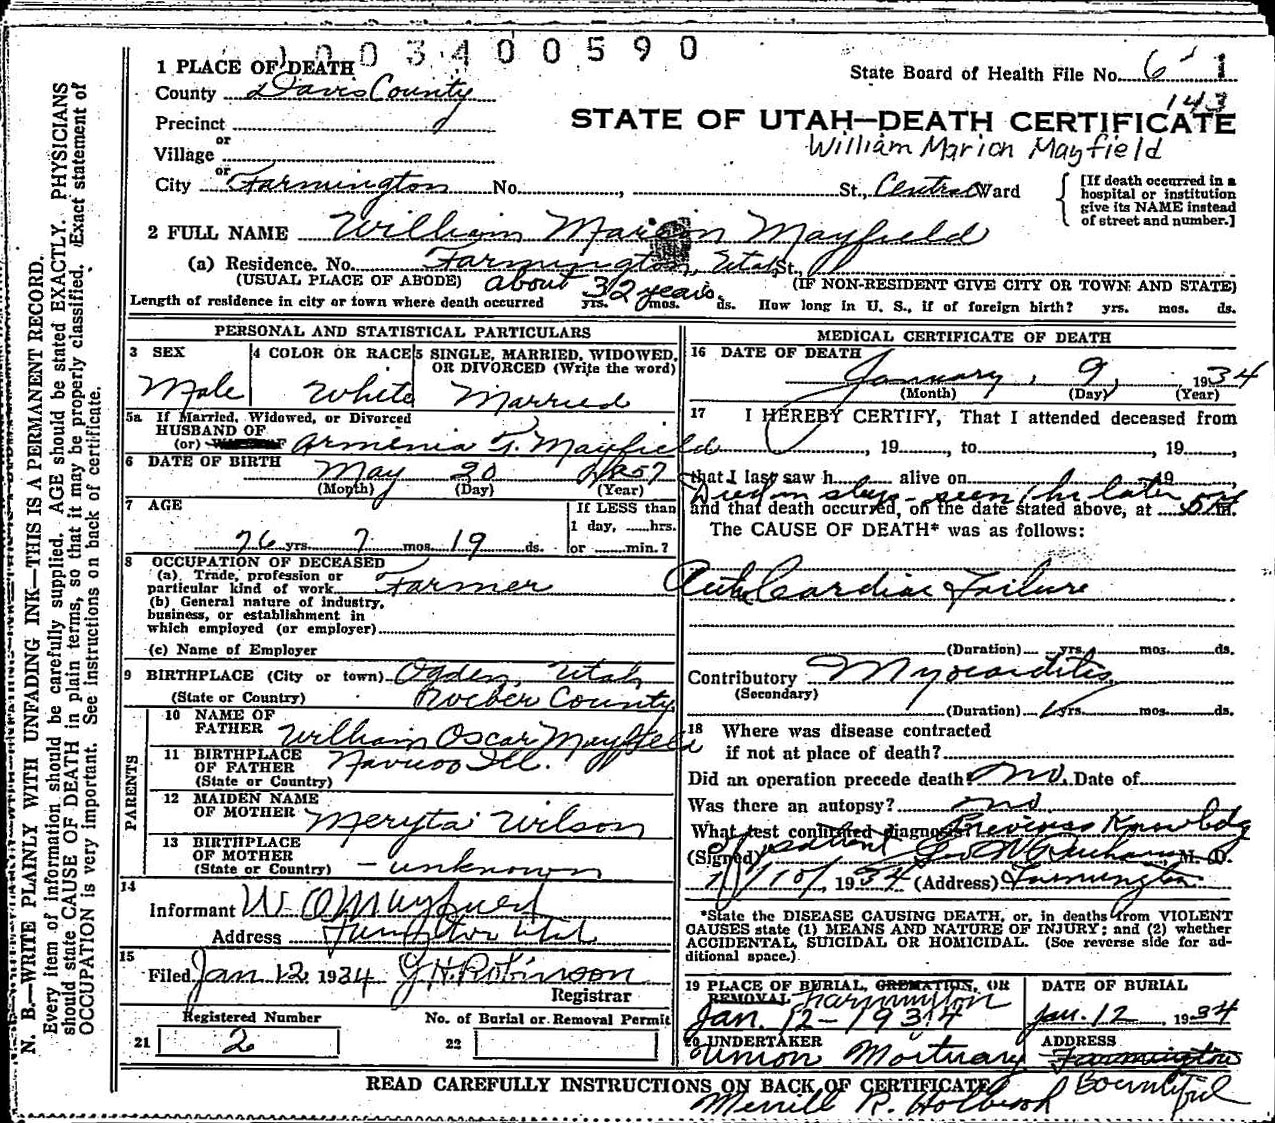 1003400590
1 PLACE OF DEATH
State Board of Health File No. 6 1
143
County Davis County
Precinct
or
Village
or
STATE OF UTAH—DEATH CERTIFICATE
William Marion Mayfield
City Farmington No. , St., Central Ward
[If death occurred in a
hospital or institution
give its NAME instead
of street and number.]
2 FULL NAME William Marion Mayfield
(a) Residence. No. Farmington, Utah St.,
(USUAL PLACE OF ABODE) about 32 years (IF NON-RESIDENT GIVE CITY OR TOWN AND STATE)
Length of residence in city or town where death occurred yrs. mos. ds. How long in U. S., if of foreign birth? yrs. mos. ds.
PERSONAL AND STATISTICAL PARTICULARS
3 SEX
Male
4 COLOR OR RACE
White
5 SINGLE, MARRIED, WIDOWED,
OR DIVORCED (Write the word)
Married
5a If Married, Widowed, or Divorced
HUSBAND OF
(or) Armenia T. Mayfield
6 DATE OF BIRTH May 20 1857
(Month) (Day) (Year)
7 AGE
76 yrs. 7 mos. 19 ds.
If LESS than
1 day, hrs.
or min.?
8 OCCUPATION OF DECEASED
(a) Trade, profession or
particular kind of work Farmer
(b) General nature of industry,
business, or establishment in
which employed (or employer)
(c) Name of Employer
9 BIRTHPLACE (City or town) Ogden, Utah
(State or Country) Weber County
PARENTS
10 NAME OF
FATHER William Oscar Mayfield
11 BIRTHPLACE
OF FATHER Navuoo Ill.
(State or Country)
12 MAIDEN NAME
OF MOTHER Meryta Wilson
13 BIRTHPLACE
OF MOTHER
(State or Country) - unknown
14
Informant W. O Mayfield
Address Farmington Utah
15
Filed Jan 12 1934 J H Robinson
Registrar
Registered Number
21 2
No. of Burial or Removal Permit
22
MEDICAL CERTIFICATE OF DEATH
16 DATE OF DEATH
January, 9, 1934
(Month) (Day) (Year)
17 I HEREBY CERTIFY, That I attended deceased from
, 19 , to , 19 ,
that I last saw h alive on 19 ,
Died in sleep - seen 1 hr later
and that death occurred, on the date stated above, at m.
The CAUSE OF DEATH* was as follows:
Acute Cardiac Failure
(Duration) yrs. mos. ds.
Contributory Myocarditis
(Secondary)
(Duration) yrs. mos. ds.
18 Where was disease contracted
if not at place of death?
Did an operation precede death? no. Date of
Was there an autopsy? no
What test confirmed diagnosis? Previous Knowledg
of patient
(Signed) M. D.
1/10/, 1934 (Address) Farmington
*State the DISEASE CAUSING DEATH, or, in deaths from VIOLENT
CAUSES state (1) MEANS AND NATURE OF INJURY; and (2) whether
ACCIDENTAL, SUICIDAL OR HOMICIDAL. (See reverse side for ad-
ditional space.)
19 PLACE OF BURIAL, CREMATION, OR
REMOVAL Farmington
Jan. 12-1934
DATE OF BURIAL
Jan. 12, 1934
20 UNDERTAKER
Union Mortuary
ADDRESS
Farmington
Bountiful
READ CAREFULLY INSTRUCTIONS ON BACK OF CERTIFICATE
Merrill R. Holbrook
N. B.—WRITE PLAINLY WITH UNFADING INK—THIS IS A PERMANENT RECORD.
Every item of information should be carefully supplied. AGE should be stated EXACTLY. PHYSICIANS
should state CAUSE OF DEATH in plain terms, so that it may be properly classified. Exact statement of
OCCUPATION is very important. See instructions on back of certificate.